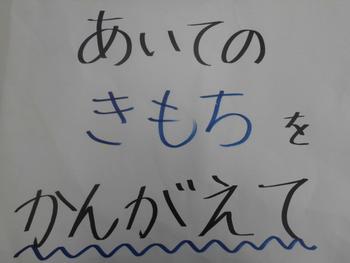 あいての
きもちを
かんがえて